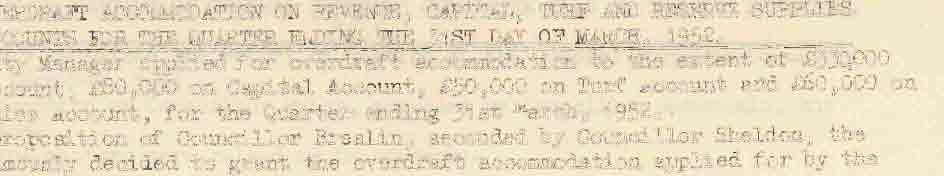 OVERDRAFT ACCOMMODATION ON REVENUE, CAPITAL, TURF AND RESERVE SUPPLIES
COUNTS FOR THE QUARTER ENDING THE 31ST DAY OF MARCH, 1952.
ty Manager applied for overdraft accommodation to the extent of
count, £80,000 on Capital Account, £50,000 on Turf account and £60,000 on
lies account, for the Quarter ending 31st March, 1952.
roposition of Councillor Breslin, seconded by Councillor Sheldon, the
mously decided to grant the overdraft accommodation applied for by the